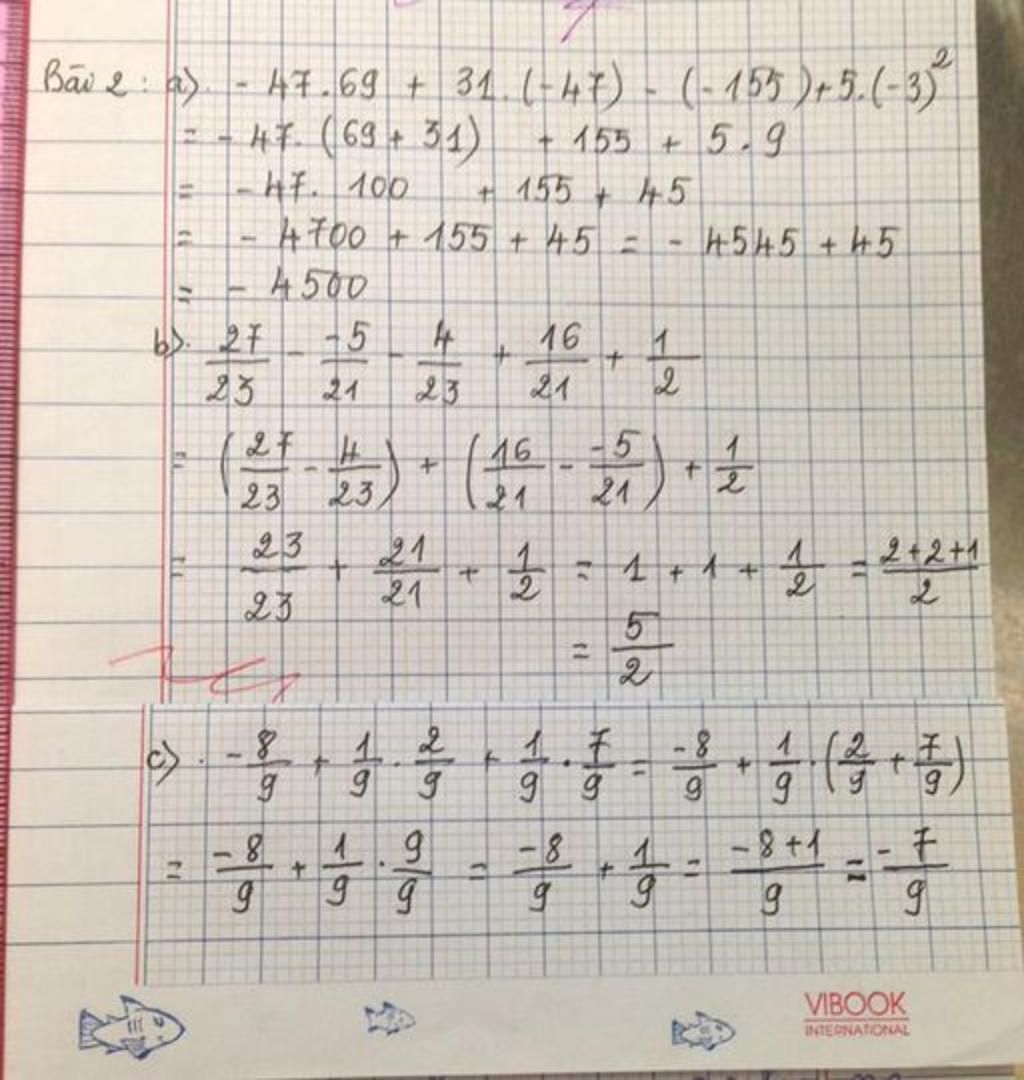 Bài 2 : a) - 47.69 + 31.(-47) - (-155)+5.(-3)²
= - 47. (69 + 31) + 155 + 5.9
= -47. 100 + 155 + 45
= - 4700 + 155 + 45 = - 4545 + 45
= - 4500
b) 27/23 - -5/21 - 4/23 + 16/21 + 1/2
= (27/23 - 4/23) + (16/21 - -5/21) + 1/2
= 23/23 + 21/21 + 1/2 = 1 + 1 + 1/2 = 2+2+1/2
= 5/2
c) -8/9 + 1/9 . 2/9 + 1/9 . 7/9 = -8/9 + 1/9 . (2/9 + 7/9)
= -8/9 + 1/9 . 9/9 = -8/9 + 1/9 = -8+1/9 = -7/9
VIBOOK
INTERNATIONAL